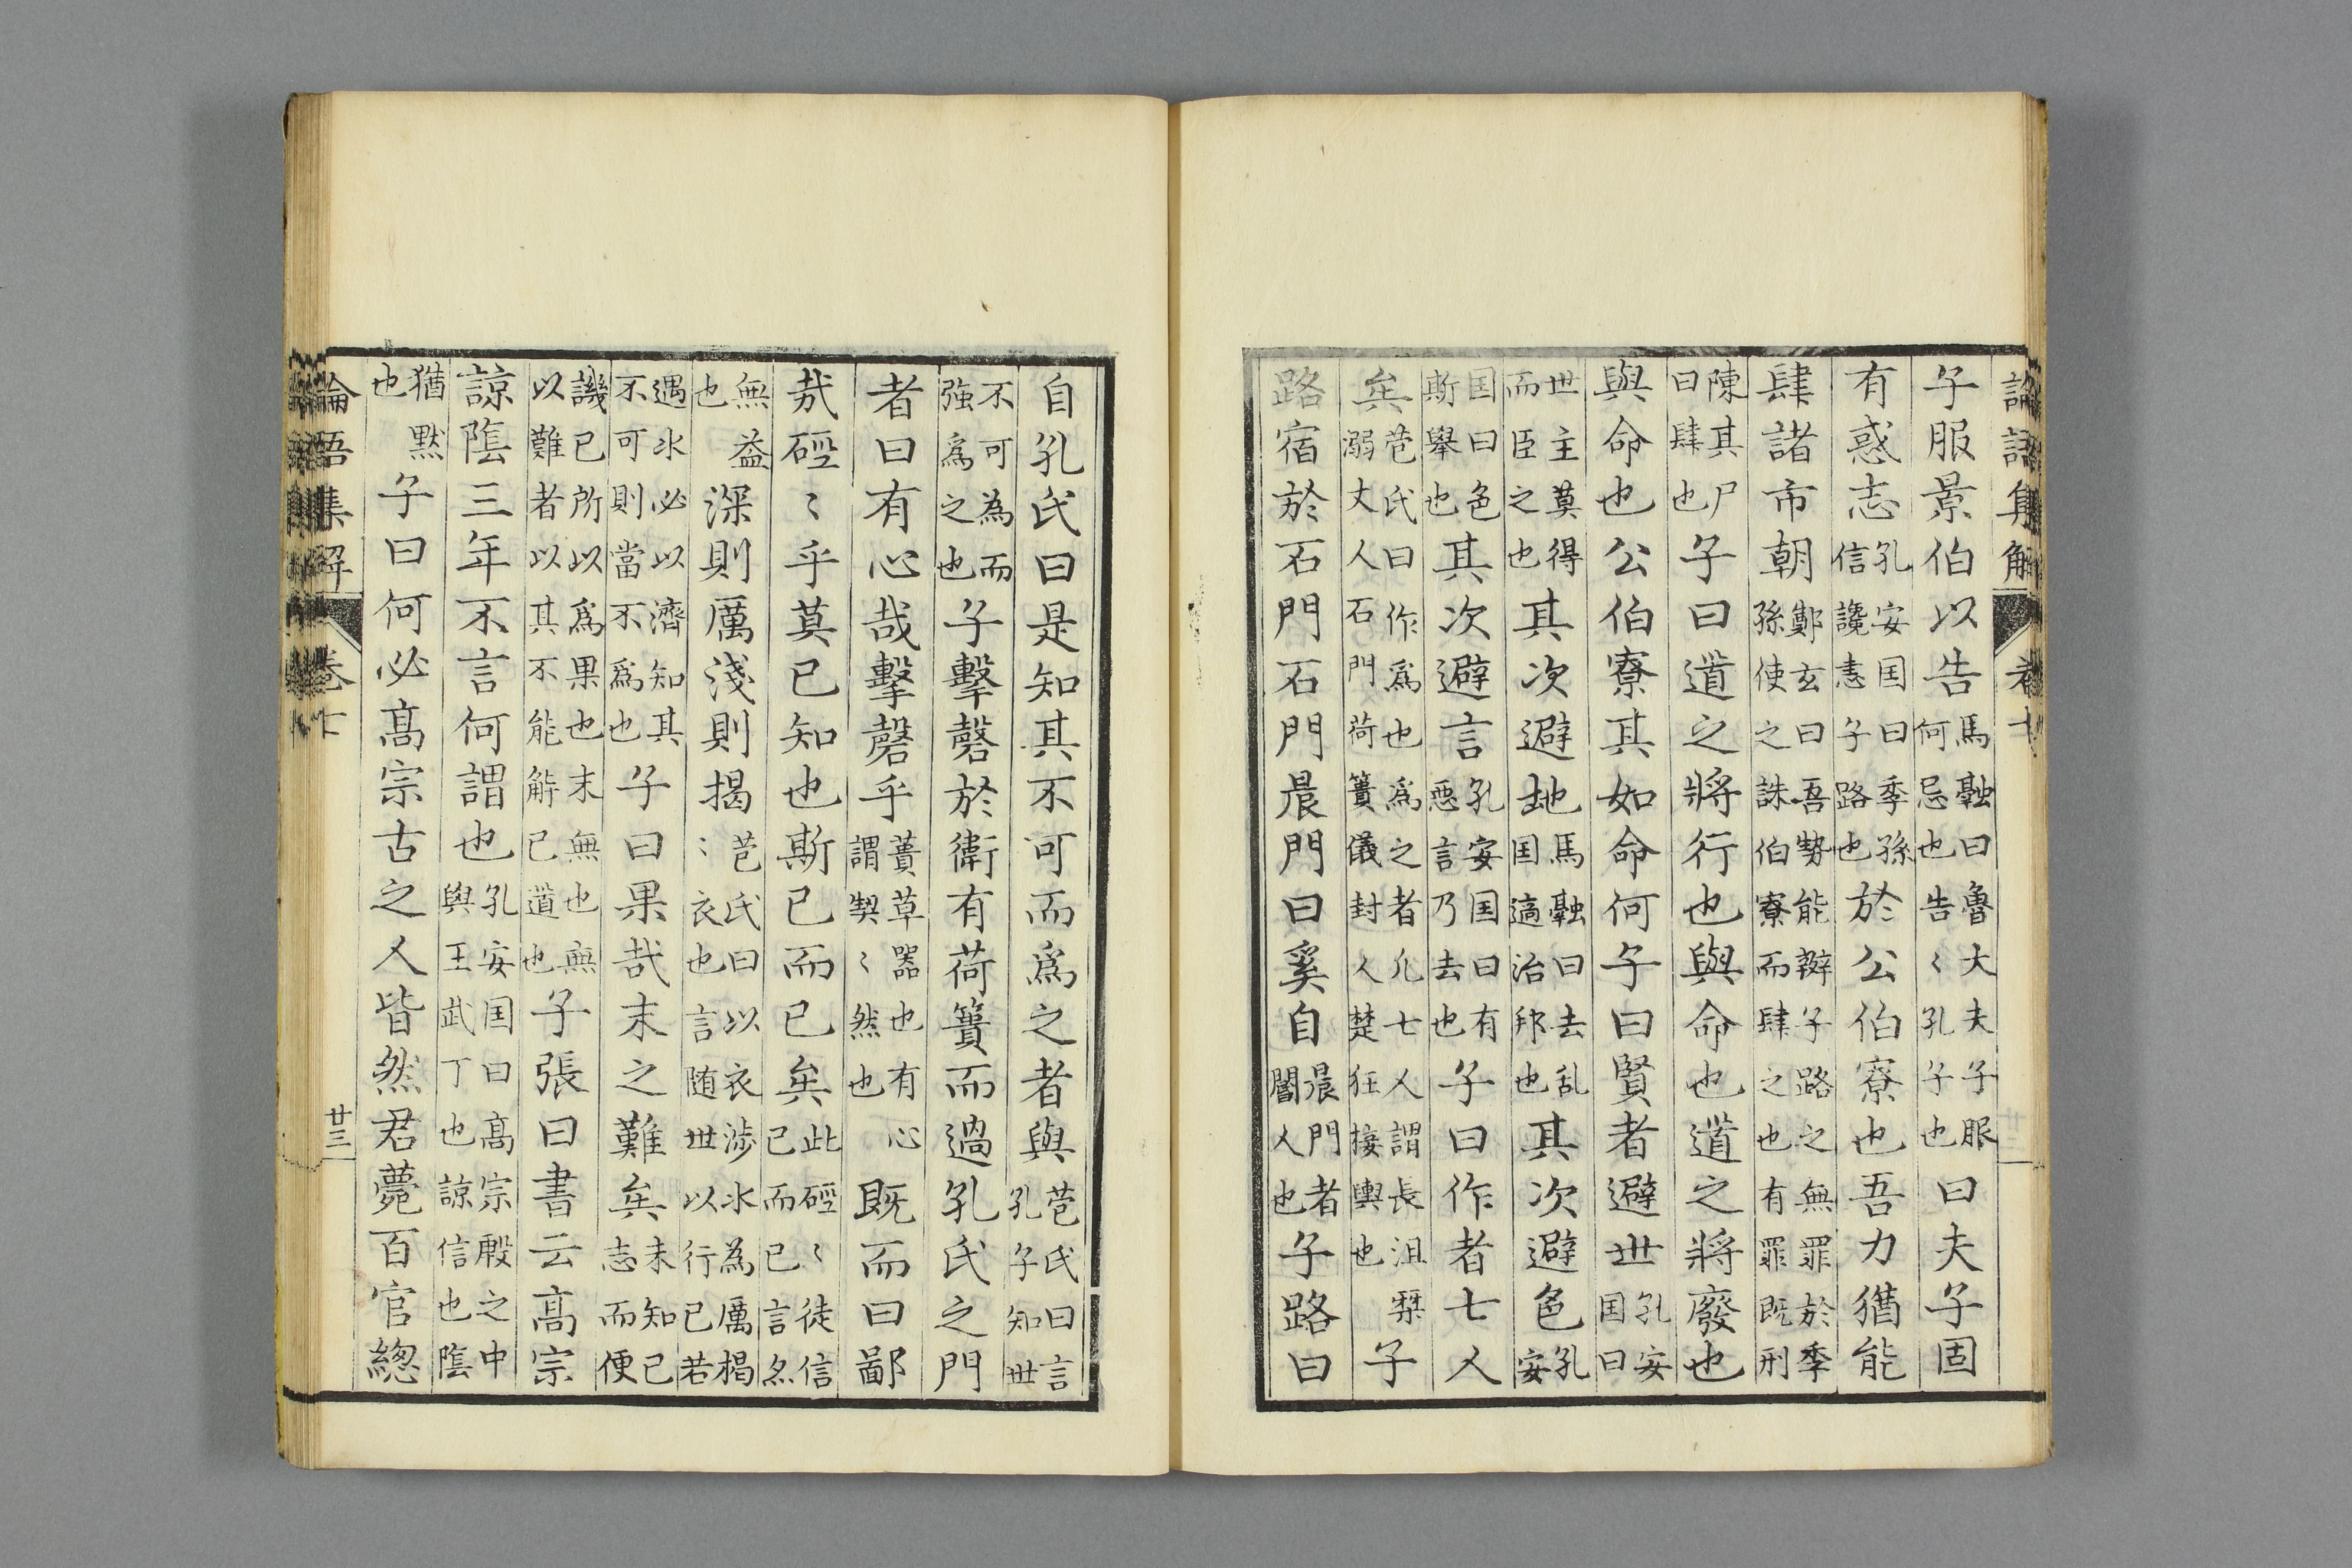 論語集解 卷七
子服景伯以告馬融曰魯大夫子服何忌也告〻孔子也曰夫子固
有惑志孔安囯曰季孫信讒恚子路也於公伯寮也吾力猶能
肆諸市朝鄭玄曰吾勢能辯子路之無罪於季孫使之誅伯寮而肆之也有罪既刑
陳其尸曰肆也子曰道之將行也與命也道之將廢也
與命也公伯寮其如命何子曰賢者避世孔安囯曰
世主莫得而臣之也其次避地馬融曰去乱囯適治邦也其次避色孔安
囯曰色斯舉也其次避言孔安囯曰有惡言乃去也子曰作者七人
矣苞氏曰作爲也爲之者凢七人謂長沮桀溺丈人石門荷簣儀封人楚狂接輿也子
路宿於石門石門晨門曰奚自晨門者閽人也子路曰
自孔氏曰是知其不可而爲之者與苞氏曰言孔子知世
不可為而強爲之也子擊磬於衛有荷簣而過孔氏之門
者曰有心哉擊磬乎蕢草器也有心謂契〻然也既而曰鄙
㢤硜〻乎莫已知也斯已而已矣此硜〻徒信己而已言亦
無益也深則厲淺則揭苞氏曰以衣渉水為厲揭〻衣也言随世以行已若
遇水必以濟知其不可則當不爲也子曰果哉末之難矣未知已志而便
譏已所以爲果也末無也無以難者以其不能解已道也子張曰書云髙宗
諒隂三年不言何謂也孔安囯曰髙宗殷之中與王武丁也諒信也隂
猶默也子曰何必髙宗古之人皆然君薨百官緫
論語集解 卷七 廿三